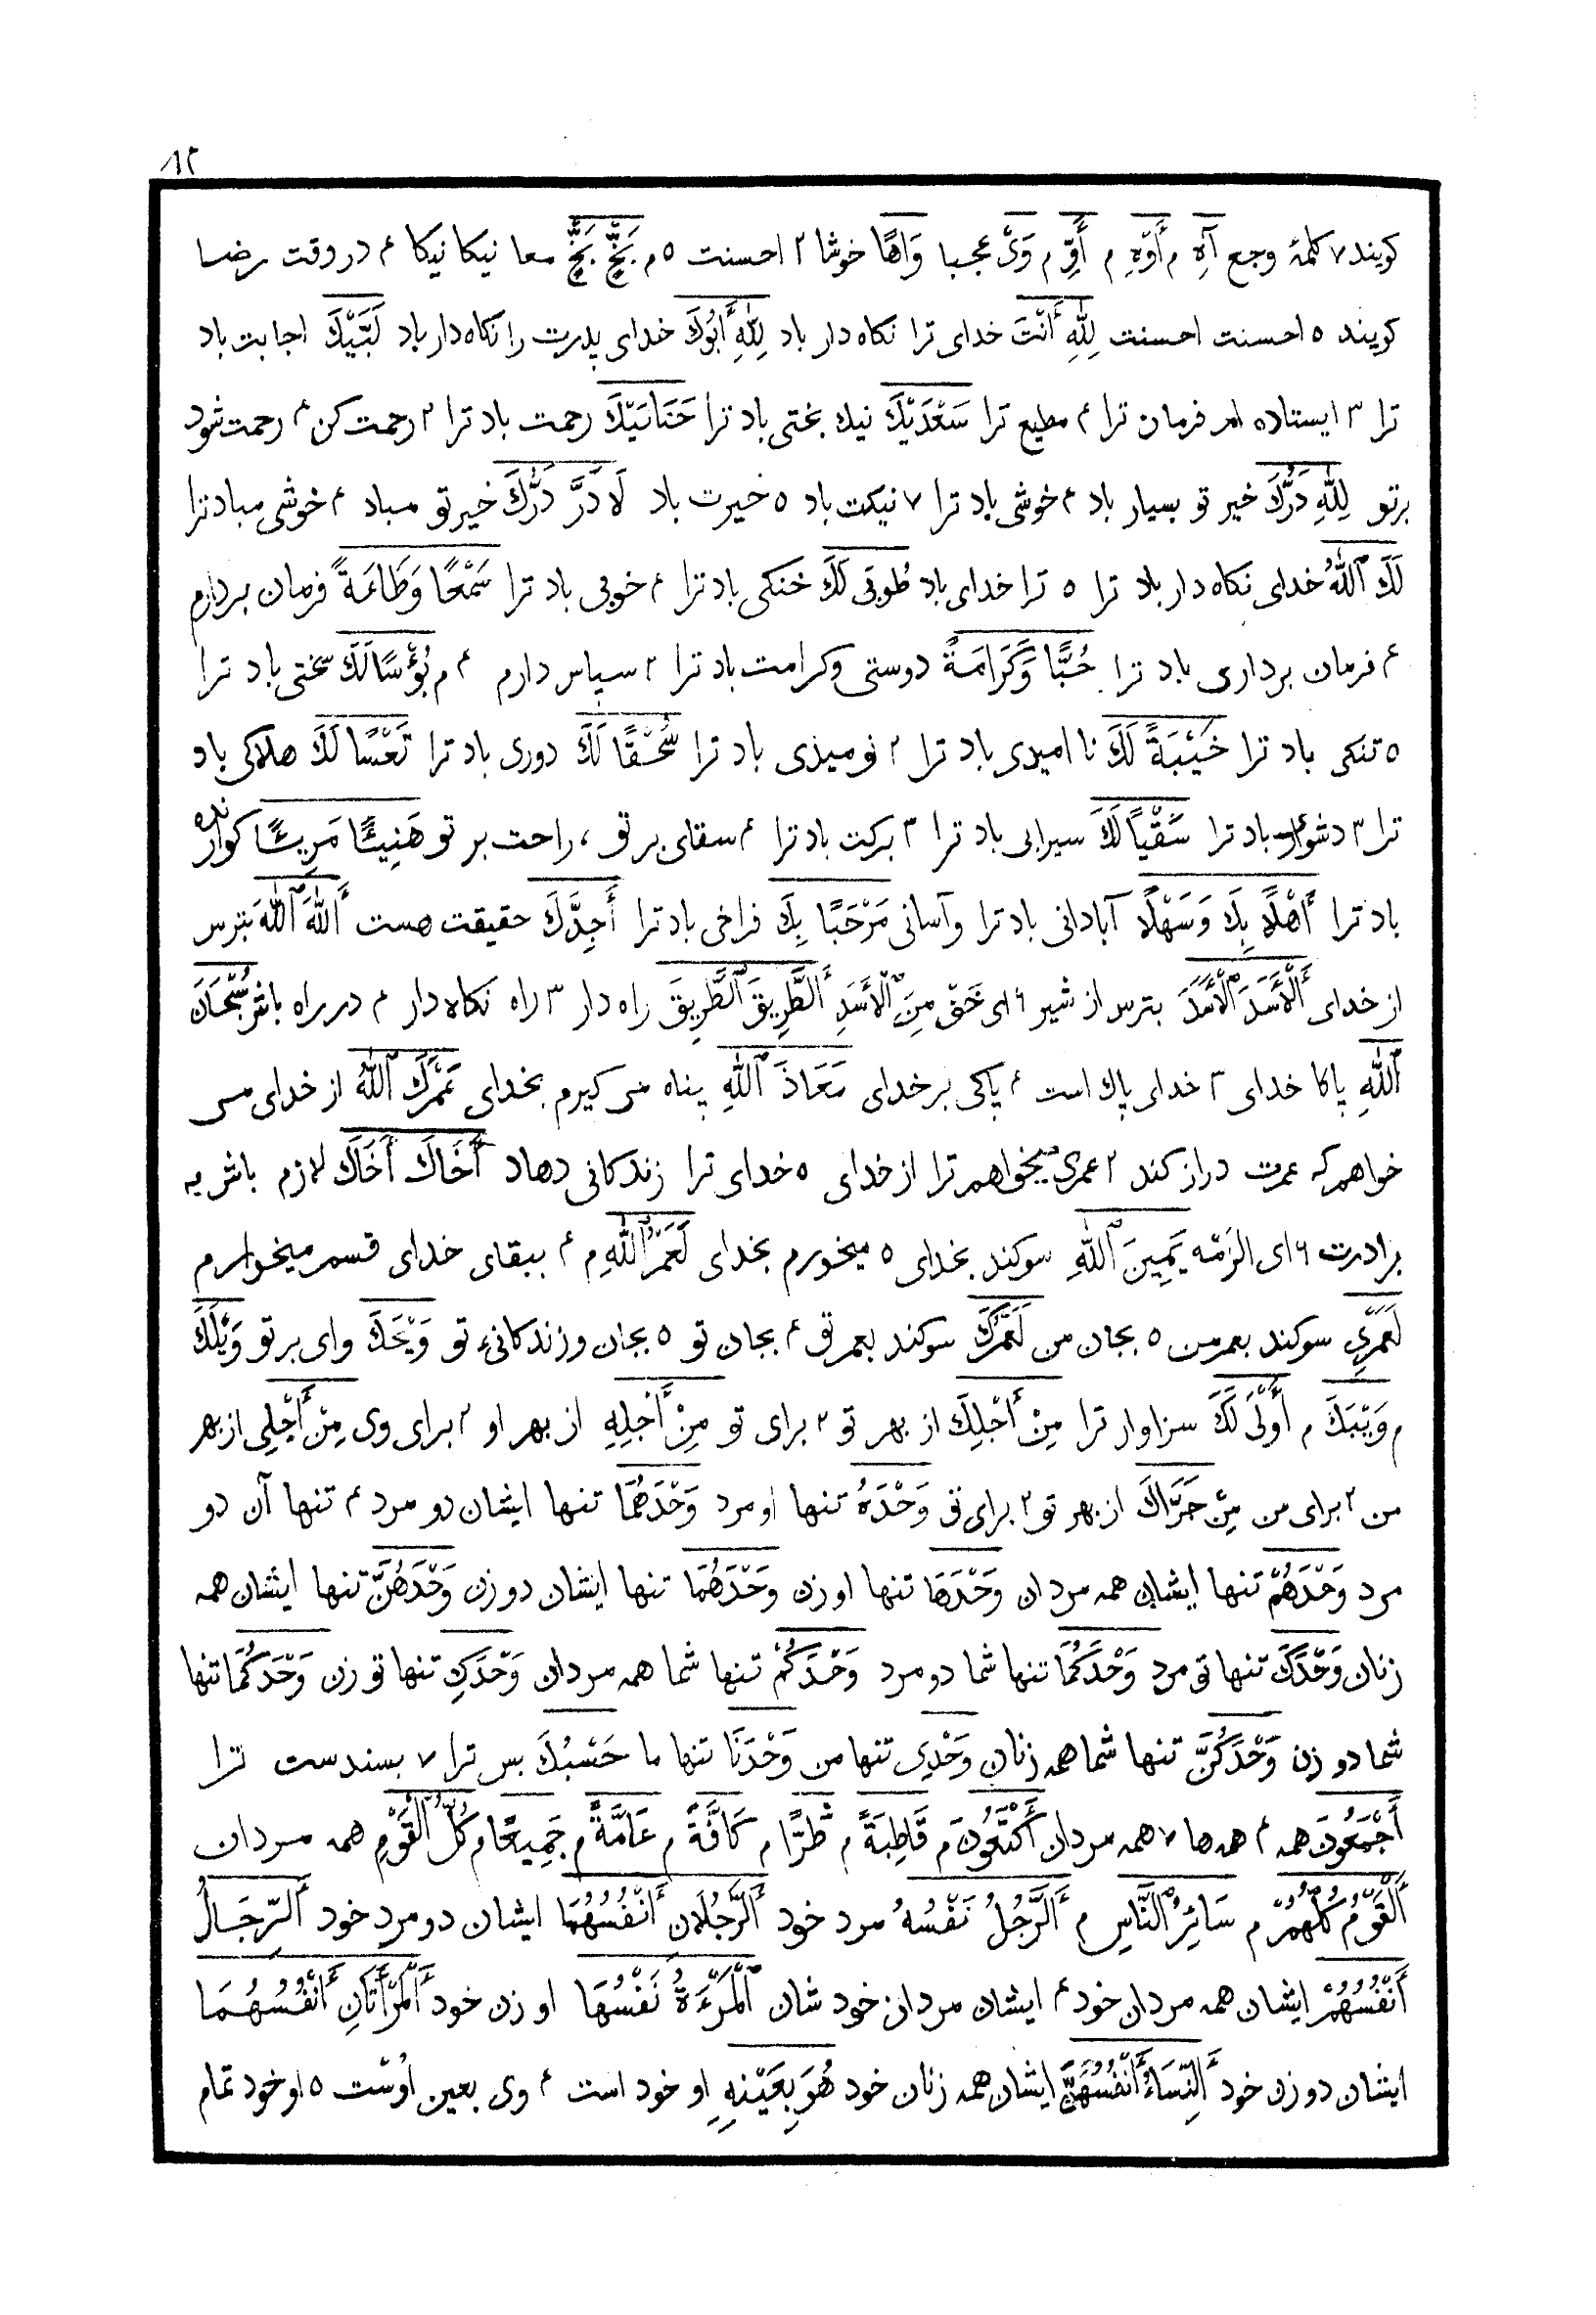 ٨٢
کویند ۷ کلمهٔ وجع آهِ م أَوَّهِ م أَوِّ م وَىْ عجبا وَاهًا خوشا ۲ احسنت ٥ م بَخٍّ بَخٍّ معا نیکا نیکا ۴ در وقت رضا
کویند ٥ احسنت احسنت لِلّٰهِ أَنْتَ خدای ترا نکاه دار باد لِلّٰهِ أَبُوكَ خدای پدرت را نکاه دار باد لَبَّيْكَ اجابت باد
ترا ۳ ایستاده ام فرمان ترا ۴ مطیع ترا سَعْدَيْكَ نیك بختی باد ترا حَنَانَيْكَ رحمت باد ترا ۲ رحمت کن ۴ رحمت شود
بر تو لِلّٰهِ دَرُّكَ خیر تو بسیار باد ۴ خوشی باد ترا ۷ نیکت باد ٥ خیرت باد لَا دَرَّ دَرُّكَ خیر تو مباد ۴ خوشی مباد ترا
لَكَ ٱللّٰهُ خدای نکاه دار باد ترا ٥ ترا خدای باد طُوبَى لَكَ خنکی باد ترا ۴ خوبی باد ترا سَمْعًا وَطَاعَةً فرمان بردارم
۴ فرمان برداری باد ترا حُبًّا وَكَرَامَةً دوستی و کرامت باد ترا ۲ سپاس دارم ۴ م بُؤْسًا لَكَ سختی باد ترا
٥ تنکی باد ترا خَيْبَةً لَكَ نا امیدی باد ترا ۲ نومیذی باد ترا سُحْقًا لَكَ دوری باد ترا تَعْسًا لَكَ هلاکی باد
ترا ۳ دشوار باد ترا سَقْيًا لَكَ سیرابی باد ترا ۳ برکت باد ترا ۴ سقای بر تو ، راحت بر تو هَنِيئًا مَرِيئًا کوارنده
باد ترا أَهْلًا بِكَ وَسَهْلًا آبادانی باد ترا وآسانی مَرْحَبًا بِكَ فراخی باد ترا أَجِدَّكَ حقیقت هست أَللّٰهَ ٱللّٰهَ بترس
از خدای أَلْأَسَدَ ٱلْأَسَدَ بترس از شیر ۶ ای نَحِّ مِنَ ٱلْأَسَدِ أَلطَّرِيقَ ٱلطَّرِيقَ راه دار ۳ راه نکاه دار ۴ در راه باش سُبْحَانَ
ٱللّٰهِ پاکا خدای ۳ خدای پاك است ۴ پاکی بر خدای مَعَاذَ ٱللّٰهِ پناه می کیرم بخدای عَمْرَكَ ٱللّٰهُ از خدای می
خواهم که عمرت دراز کند ۲ عمری میخواهم ترا از خدای ٥ خدای ترا زندکانی دهاد أَخَاكَ أَخَاكَ لازم باش به
برادرت ۶ ای الزمه يَمِينَ ٱللّٰهِ سوکند بخدای ٥ میخورم بخدای لَعَمْرُ ٱللّٰهِ م ۴ ببقای خدای قسم میخوارم
لَعَمْرِي سوکند بعمر من ٥ بجان من لَعَمْرُكَ سوکند بعمر تو ۴ بجان تو ٥ بجان وزندکانیٔ تو وَيْحَكَ وای بر تو وَيْلَكَ
م وَيْبَكَ م أَوْلَى لَكَ سزاوار ترا مِنْ أَجْلِكَ از بهر تو ۲ برای تو مِنْ أَجْلِهِ از بهر او ۲ برای وی مِنْ أَجْلِي از بهر
من ۲ برای من مِنْ جَرَّاكَ از بهر تو ۲ برای تو وَحْدَهُ تنها او مرد وَحْدَهُمَا تنها ایشان دو مرد ۴ تنها آن دو
مرد وَحْدَهُمْ تنها ایشان همه مردان وَحْدَهَا تنها او زن وَحْدَهُمَا تنها ایشان دو زن وَحْدَهُنَّ تنها ایشان همه
زنان وَحْدَكَ تنها تو مرد وَحْدَكُمَا تنها شما دو مرد وَحْدَكُمْ تنها شما همه مردان وَحْدَكِ تنها تو زن وَحْدَكُمَا تنها
شما دو زن وَحْدَكُنَّ تنها شما همه زنان وَحْدِي تنها من وَحْدَنَا تنها ما حَسْبُكَ بس ترا ۷ بسندست ترا
أَجْمَعُونَ همه ۴ همه ها ۷ همه مردان أَكْتَعُونَ م قَاطِبَةً م طُرًّا م كَافَّةً م عَامَّةً م جَمِيعًا م كُلُّ ٱلْقَوْمِ همه مردان
أَلْقَوْمُ كُلُّهُمْ م سَائِرُ ٱلنَّاسِ م أَلرَّجُلُ نَفْسُهُ مرد خود أَلرَّجُلَانِ أَنْفُسُهُمَا ایشان دو مرد خود أَلرِّجَالُ
أَنْفُسُهُمْ ایشان همه مردان خود ۴ ایشان مردان خود شان ٱلْمَرْءَةُ نَفْسُهَا او زن خود أَلْمَرْأَتَانِ أَنْفُسُهُمَا
ایشان دو زن خود أَلنِّسَاءُ أَنْفُسُهُنَّ ایشان همه زنان خود هُوَ بِعَيْنِهِ او خود است ۴ وی بعین اوُست ٥ او خود تمام